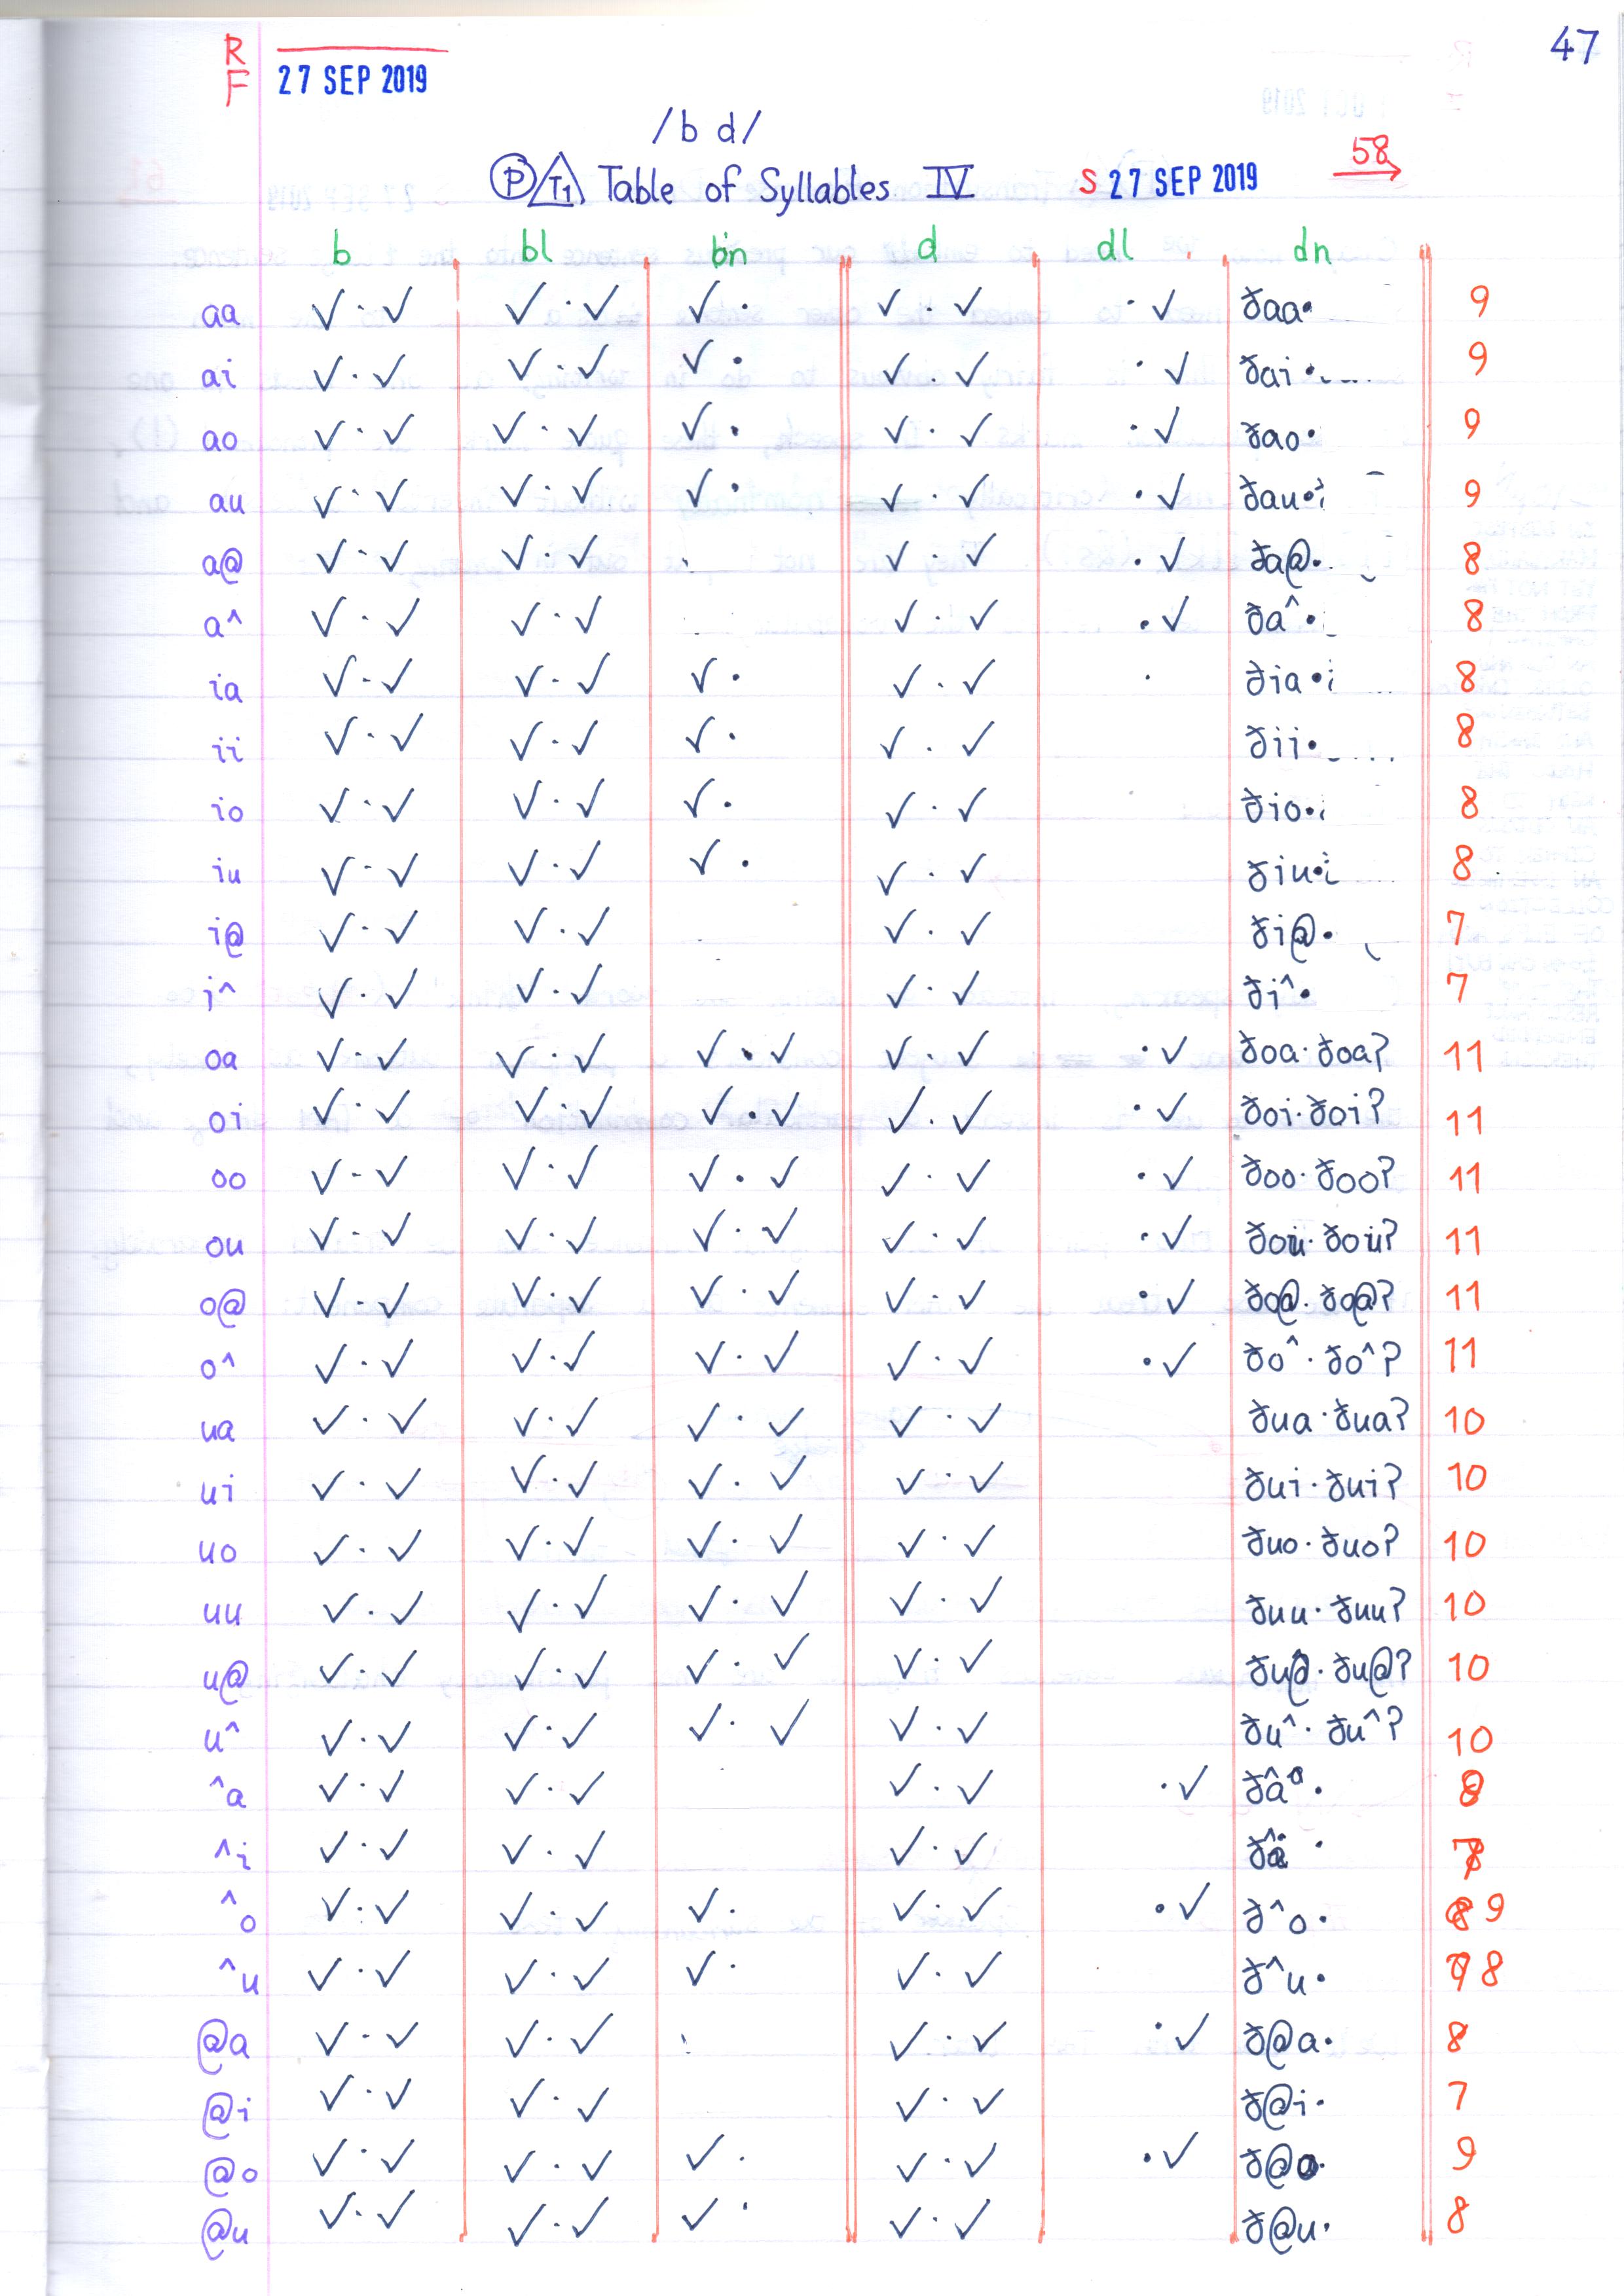 R 47
F 27 SEP 2019
/b d/
P T1 Table of Syllables IV S 27 SEP 2019 58
b bl bn d dl dn
aa ✓·✓ ✓·✓ ✓· ✓·✓ ·✓ ðaa· 9
ai ✓·✓ ✓·✓ ✓· ✓·✓ ·✓ ðai· 9
ao ✓·✓ ✓·✓ ✓· ✓·✓ ·✓ ðao· 9
au ✓·✓ ✓·✓ ✓· ✓·✓ ·✓ ðau· 9
a@ ✓·✓ ✓·✓ ✓·✓ ·✓ ða@· 8
a^ ✓·✓ ✓·✓ ✓·✓ ·✓ ða^· 8
ia ✓·✓ ✓·✓ ✓· ✓·✓ · ðia· 8
ii ✓·✓ ✓·✓ ✓· ✓·✓ ðii· 8
io ✓·✓ ✓·✓ ✓· ✓·✓ ðio· 8
iu ✓·✓ ✓·✓ ✓· ✓·✓ ðiu· 8
i@ ✓·✓ ✓·✓ ✓·✓ ði@· 7
i^ ✓·✓ ✓·✓ ✓·✓ ði^· 7
oa ✓·✓ ✓·✓ ✓·✓ ✓·✓ ·✓ ðoa·ðoa? 11
oi ✓·✓ ✓·✓ ✓·✓ ✓·✓ ·✓ ðoi·ðoi? 11
oo ✓·✓ ✓·✓ ✓·✓ ✓·✓ ·✓ ðoo·ðoo? 11
ou ✓·✓ ✓·✓ ✓·✓ ✓·✓ ·✓ ðou·ðou? 11
o@ ✓·✓ ✓·✓ ✓·✓ ✓·✓ ·✓ ðo@·ðo@? 11
o^ ✓·✓ ✓·✓ ✓·✓ ✓·✓ ·✓ ðo^·ðo^? 11
ua ✓·✓ ✓·✓ ✓·✓ ✓·✓ ðua·ðua? 10
ui ✓·✓ ✓·✓ ✓·✓ ✓·✓ ðui·ðui? 10
uo ✓·✓ ✓·✓ ✓·✓ ✓·✓ ðuo·ðuo? 10
uu ✓·✓ ✓·✓ ✓·✓ ✓·✓ ðuu·ðuu? 10
u@ ✓·✓ ✓·✓ ✓·✓ ✓·✓ ðu@·ðu@? 10
u^ ✓·✓ ✓·✓ ✓·✓ ✓·✓ ðu^·ðu^? 10
^a ✓·✓ ✓·✓ ✓·✓ ·✓ ð^a· 8
^i ✓·✓ ✓·✓ ✓·✓ ð^i·
^o ✓·✓ ✓·✓ ✓· ✓·✓ ·✓ ð^o· 9
^u ✓·✓ ✓·✓ ✓· ✓·✓ ð^u· 8
@a ✓·✓ ✓·✓ ✓·✓ ·✓ ð@a· 8
@i ✓·✓ ✓·✓ ✓·✓ ð@i· 7
@o ✓·✓ ✓·✓ ✓· ✓·✓ ·✓ ð@o· 9
@u ✓·✓ ✓·✓ ✓· ✓·✓ ð@u· 8